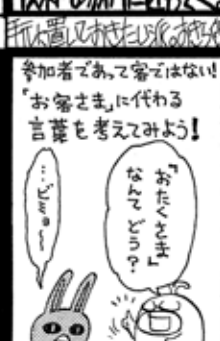 参加者であって客ではない!
「お客さま」に代わる
言葉を考えてみよう!
『おたくさま』
なんて どう?
…ビミョ〜